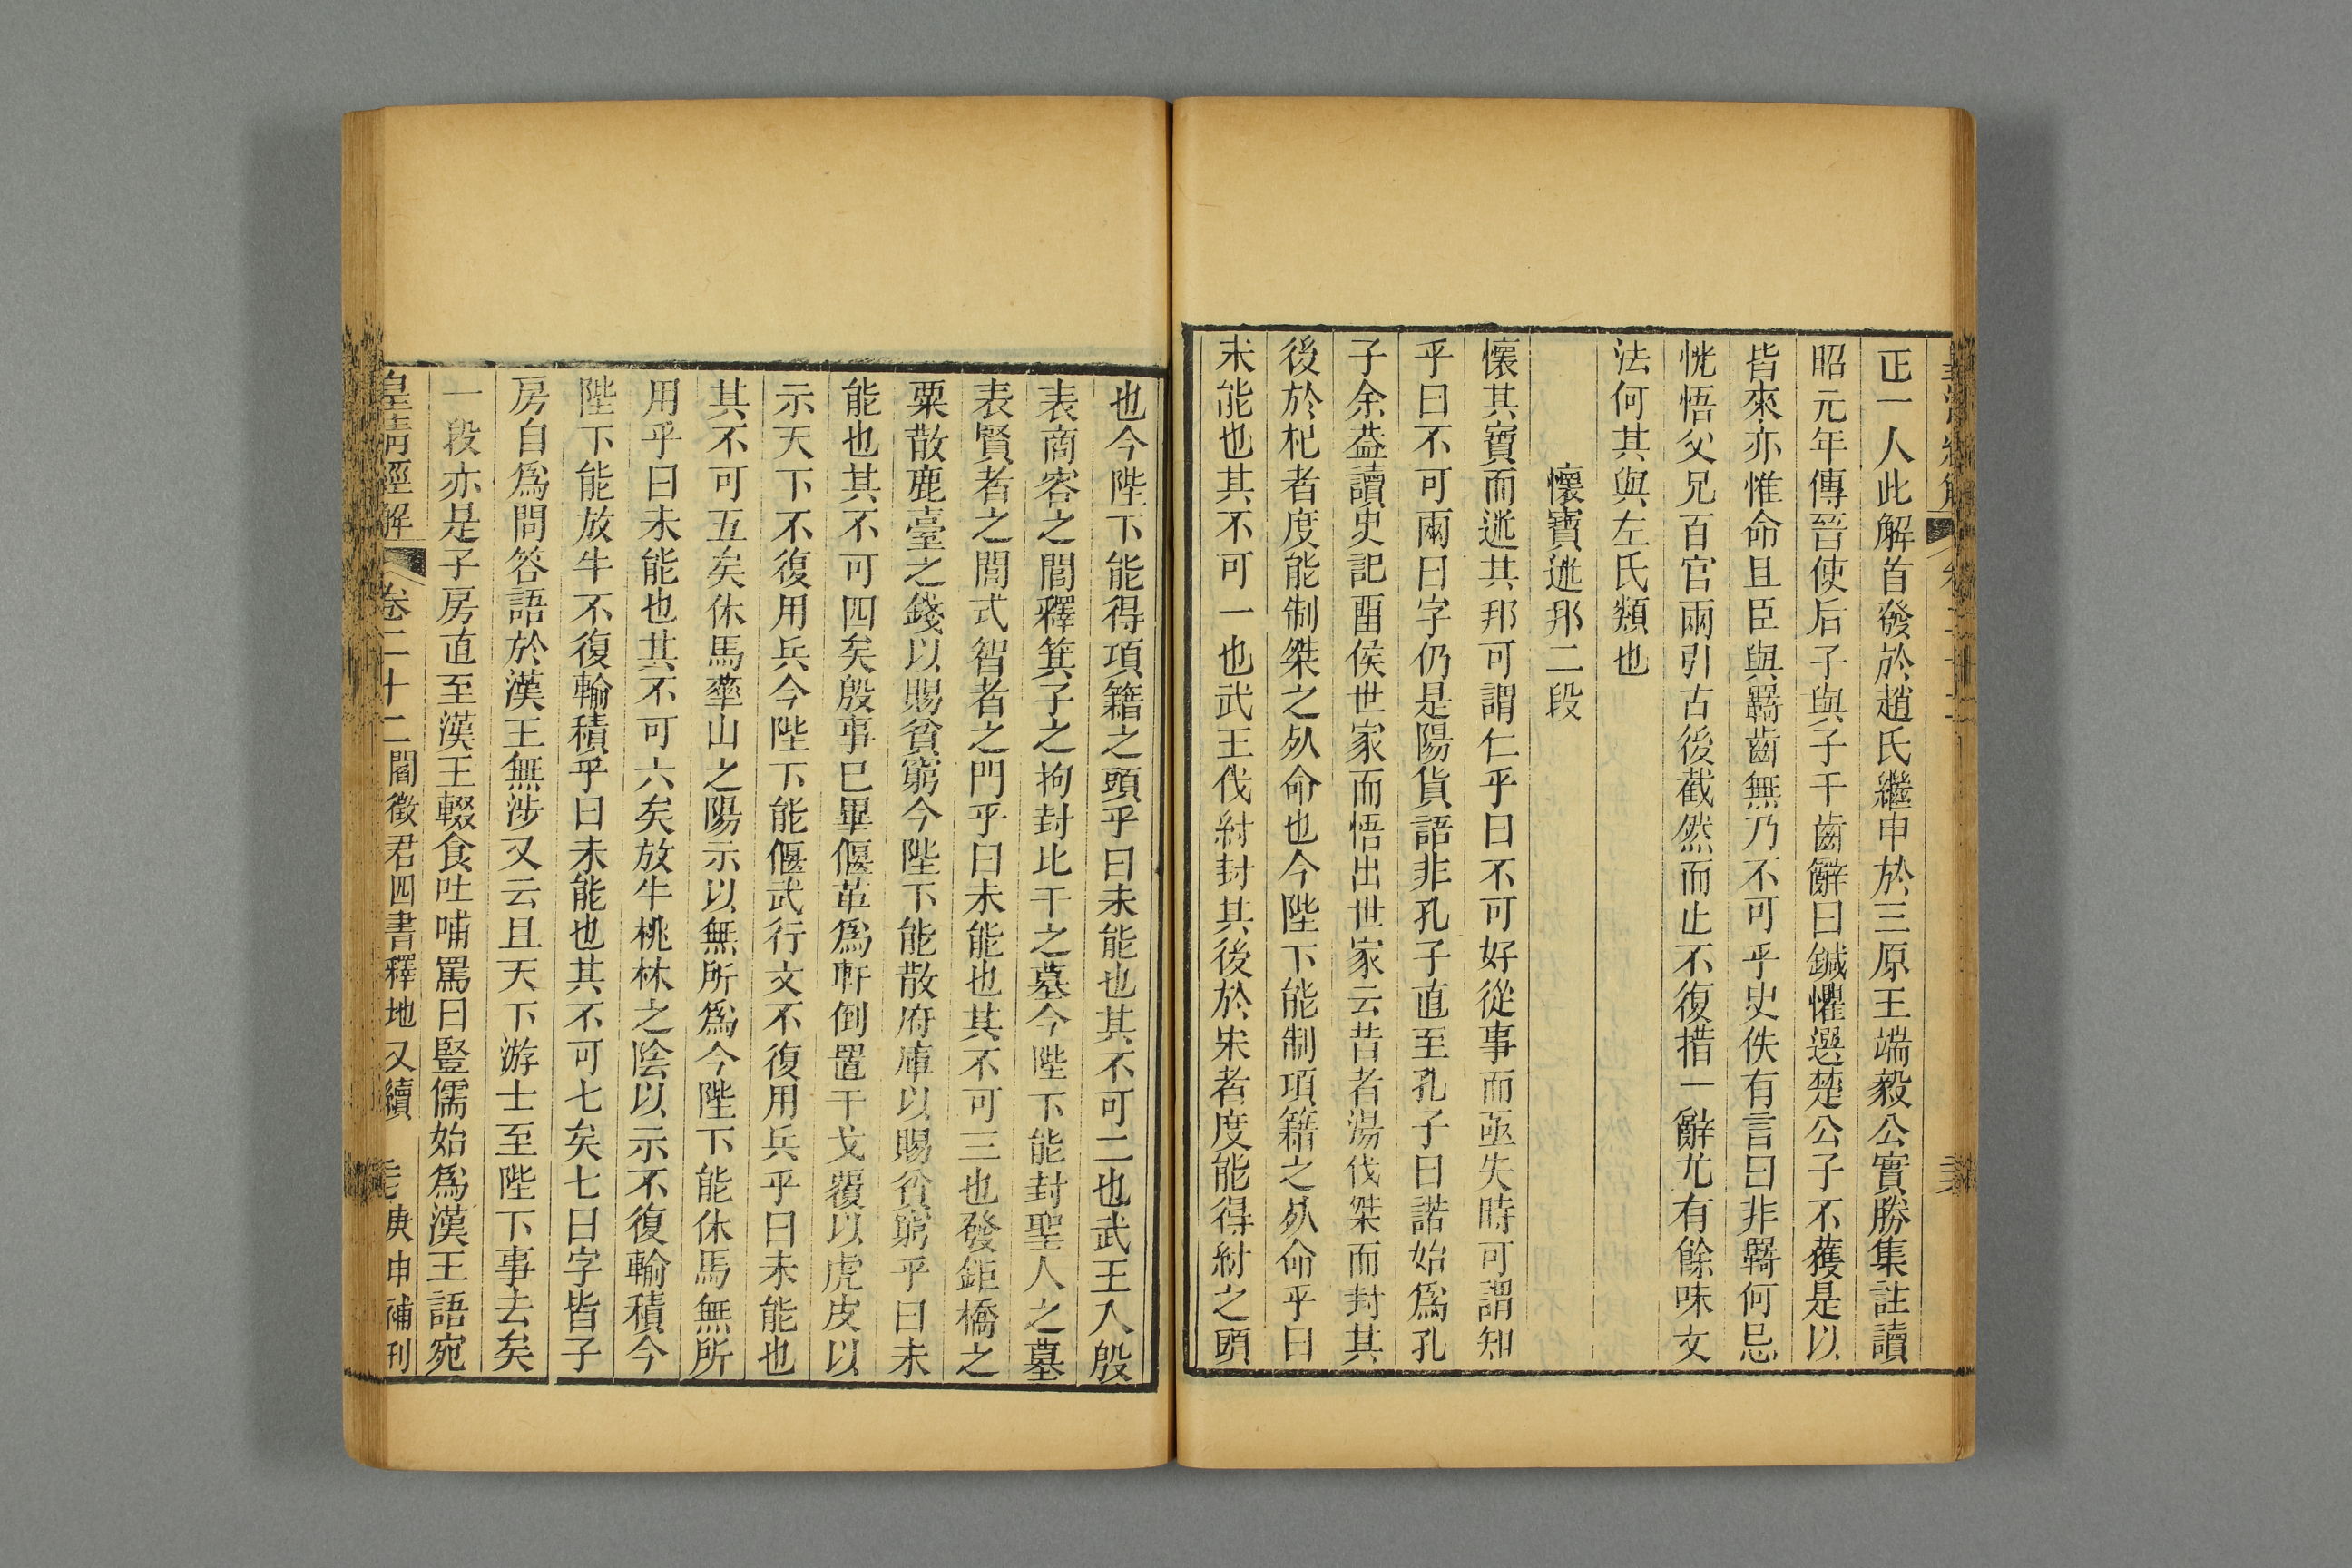 正一人此解首發於趙氏繼申於三原王端毅公實勝集註讀
昭元年傳晉使后子與子干齒辭曰鍼懼選楚公子不獲是以
皆來亦惟命且臣與羇齒無乃不可乎史佚有言曰非羇何忌
恍悟父兄百官兩引古後截然而止不復措一辭尤有餘味文
法何其與左氏類也
懷寶迷邦二段
懷其寶而迷其邦可謂仁乎曰不可好從事而亟失時可謂知
乎曰不可兩曰字仍是陽貨語非孔子直至孔子曰諾始爲孔
子余葢讀史記畱侯世家而悟出世家云昔者湯伐桀而封其
後於杞者度能制桀之死命也今陛下能制項籍之死命乎曰
未能也其不可一也武王伐紂封其後於宋者度能得紂之頭
也今陛下能得項籍之頭乎曰未能也其不可二也武王入殷
表商容之閭釋箕子之拘封比干之墓今陛下能封聖人之墓
表賢者之閭式智者之門乎曰未能也其不可三也發鉅橋之
粟散鹿臺之錢以賜貧窮今陛下能散府庫以賜貧窮乎曰未
能也其不可四矣殷事已畢偃革爲軒倒置干戈覆以虎皮以
示天下不復用兵今陛下能偃武行文不復用兵乎曰未能也
其不可五矣休馬華山之陽示以無所爲今陛下能休馬無所
用乎曰未能也其不可六矣放牛桃林之陰以示不復輸積今
陛下能放牛不復輸積乎曰未能也其不可七矣七曰字皆子
房自爲問答語於漢王無涉又云且天下游士至陛下事去矣
一段亦是子房直至漢王輟食吐哺罵曰豎儒始爲漢王語宛
皇清經解 卷二十二 閻徵君四書釋地又續 庚申補刊